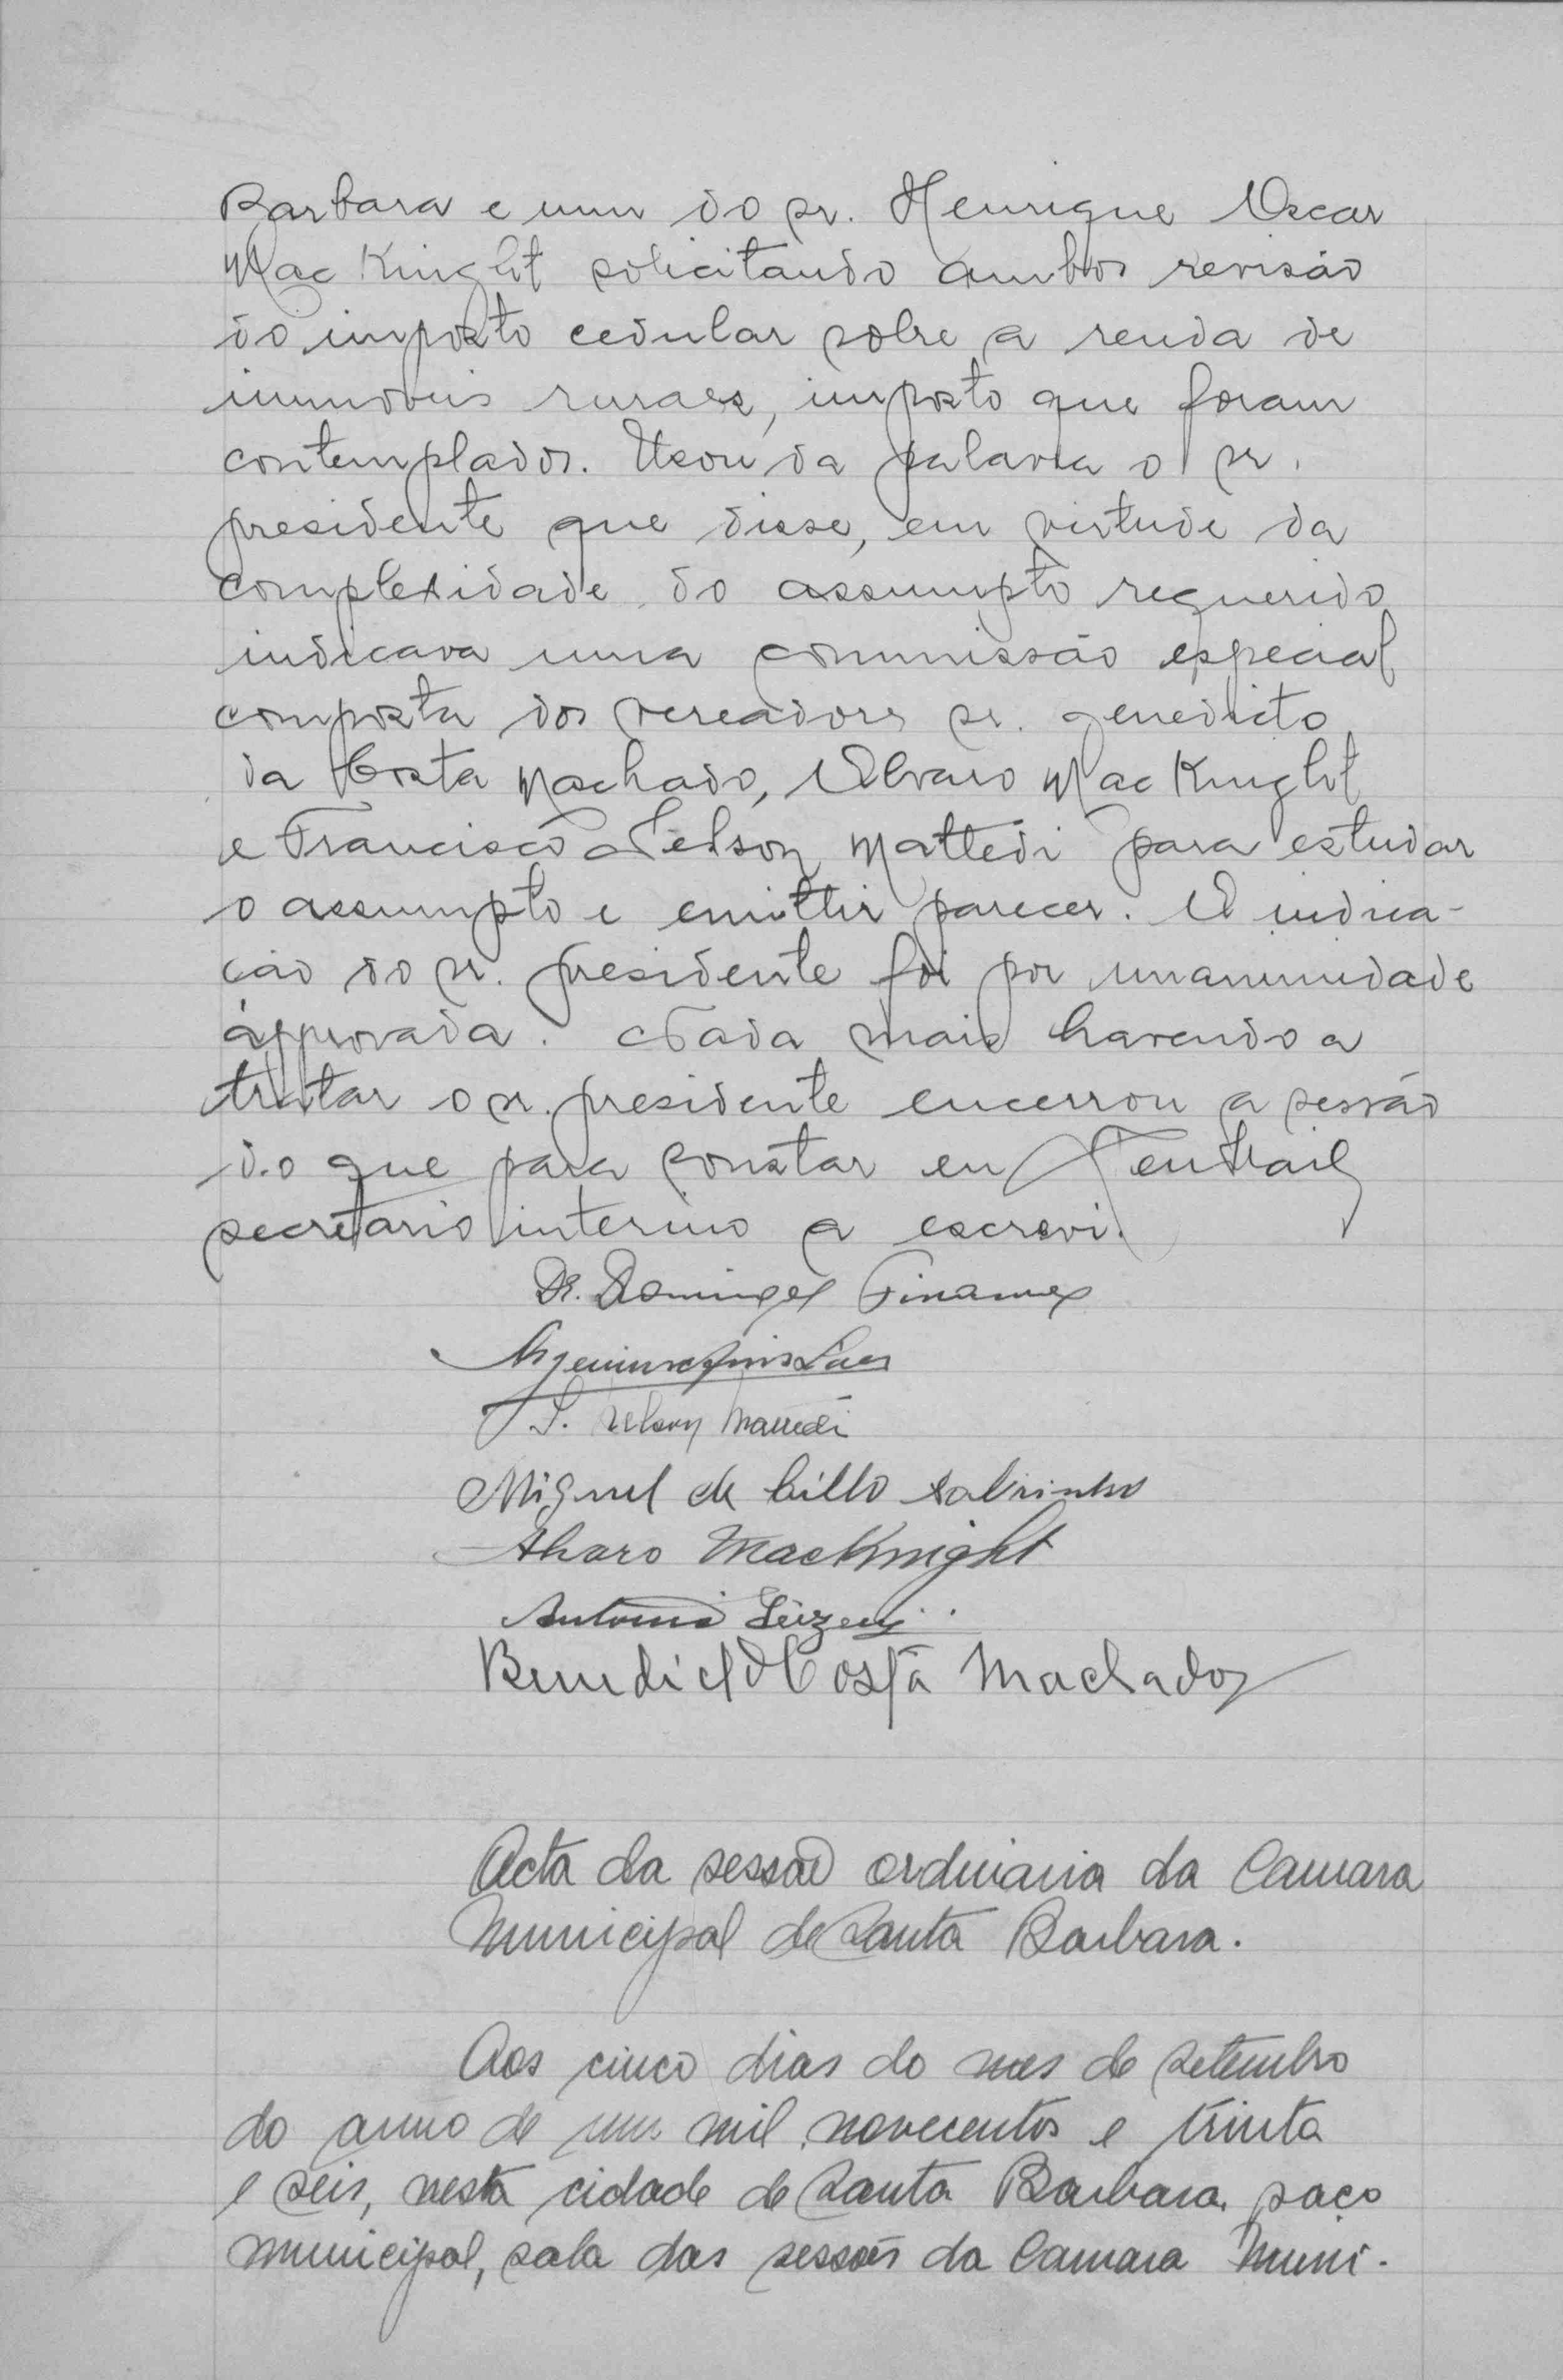 Barbara e um do sr. Henrique Oscar
Mac Knight solicitando ambos revisão
do imposto cedular sobre a renda de
immoveis ruraes, imposto que foram
contemplados. Usou da palavra o sr.
presidente que disse, em virtude da
complexidade do assumpto requerido
indicava uma commissão especial
composta dos vereadores sr. Benedicto
da Costa Machado, Alvaro Mac Knight
e Francisco Nelson Mattedi para estudar
o assumpto e emittir parecer. A indica-
ção do sr. presidente foi por unanimidade
approvada. Nada mais havendo a
tratar o sr. presidente encerrou a sessão
do que para constar eu
secretario interino a escrevi.
Dr. Domingos Finamor
F. Nelson Mattedi
Miguel de Cillo Sobrinho
Alvaro MacKnight
Antonio
Benedicto Costa Machado
Acta da sessão ordinaria da Camara
Municipal de Santa Barbara.
Aos cinco dias do mes de setembro
do anno de um mil novecentos e trinta
e seis, nesta cidade de Santa Barbara, paço
municipal, sala das sessões da Camara Muni-